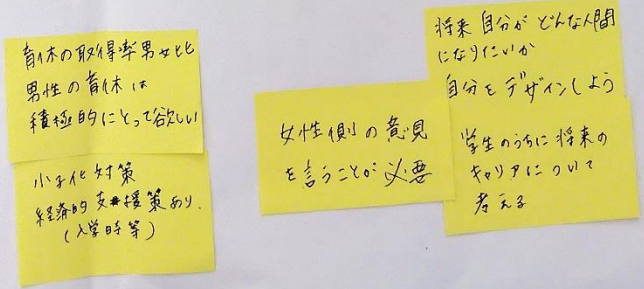 育休の取得率男女比
男性の育休は
積極的にとって欲しい
少子化対策
経済的支援策あり.
(入学時等)
女性側の意見
を言うことが必要
将来自分がどんな人間
になりたいか
自分をデザインしよう
学生のうちに将来の
キャリアについて
考える